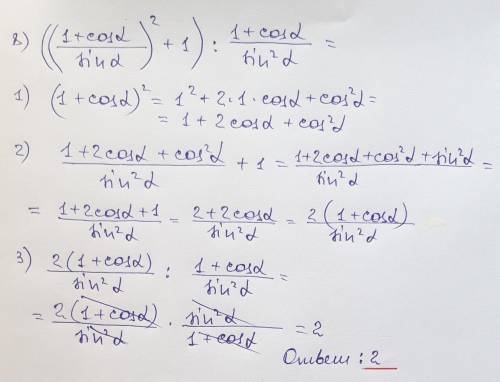 8) ((1+cosα / sinα)² + 1) : 1+cosα / sin²α =
1) (1+cosα)² = 1² + 2·1·cosα + cos²α =
= 1 + 2cosα + cos²α
2) 1+2cosα+cos²α / sin²α + 1 = 1+2cosα+cos²α+sin²α / sin²α =
= 1+2cosα+1 / sin²α = 2+2cosα / sin²α = 2(1+cosα) / sin²α
3) 2(1+cosα) / sin²α : 1+cosα / sin²α =
= 2(1+cosα) / sin²α · sin²α / 1+cosα = 2
Ответ: 2